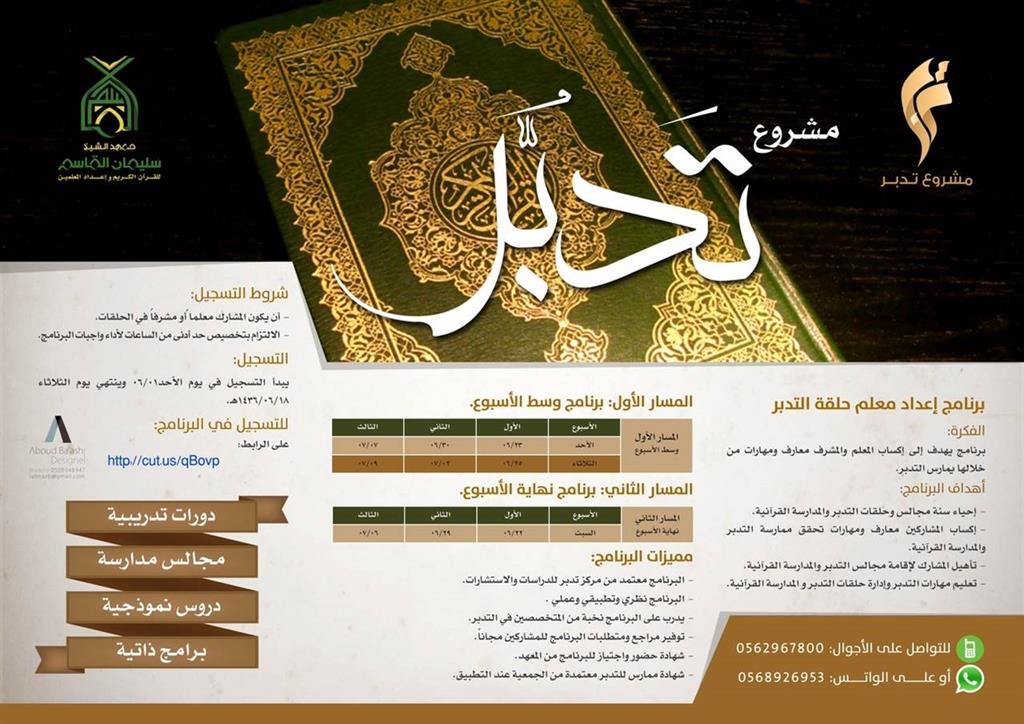 مشروع
تدبُّر
مشروع تدبر
معهد الشيخ
سليمان القاسم
للقرآن الكريم وإعداد المعلمين
برنامج إعداد معلم حلقة التدبر
الفكرة:
برنامج يهدف إلى إكساب المعلم والمشرف معارف ومهارات من
خلالها يمارس التدبر.
أهداف البرنامج:
- إحياء سنة مجالس وحلقات التدبر والمدارسة القرآنية.
- إكساب المشاركين معارف ومهارات تحقق ممارسة التدبر
والمدارسة القرآنية.
- تأهيل المشارك لإقامة مجالس التدبر والمدارسة القرآنية.
- تعليم مهارات التدبر وإدارة حلقات التدبر و المدارسة القرآنية.
للتواصل على الأجوال: 0562967800
أو علــى الواتــس: 0568926953
المسار الأول: برنامج وسط الأسبوع.
المسار الأول
وسط الأسبوع
الأسبوع الأول الثاني الثالث
الأحد ٠٦/٢٣ ٠٦/٣٠ ٠٧/٠٧
الثلاثاء ٠٦/٢٥ ٠٧/٠٢ ٠٧/٠٩
المسار الثاني: برنامج نهاية الأسبوع.
المسار الثاني
نهاية الأسبوع
الأسبوع الأول الثاني الثالث
السبت ٠٦/٢٢ ٠٦/٢٩ ٠٧/٠٦
مميزات البرنامج:
- البرنامج معتمد من مركز تدبر للدراسات والاستشارات.
- البرنامج نظري وتطبيقي وعملي .
- يدرب على البرنامج نخبة من المتخصصين في التدبر.
- توفير مراجع ومتطلبات البرنامج للمشاركين مجاناً.
- شهادة حضور واجتياز للبرنامج من المعهد.
- شهادة ممارس للتدبر معتمدة من الجمعية عند التطبيق.
شروط التسجيل:
- أن يكون المشارك معلماً أو مشرفاً في الحلقات.
- الالتزام بتخصيص حد أدنى من الساعات لأداء واجبات البرنامج.
التسجيل:
يبدأ التسجيل في يوم الأحد ٠٦/٠١ وينتهي يوم الثلاثاء
١٤٣٦/٠٦/١٨هـ.
للتسجيل في البرنامج:
على الرابط:
http://cut.us/qBovp
Aboud Ba'ashi
Designer
دورات تدريبية
مجالس مدارسة
دروس نموذجية
برامج ذاتية